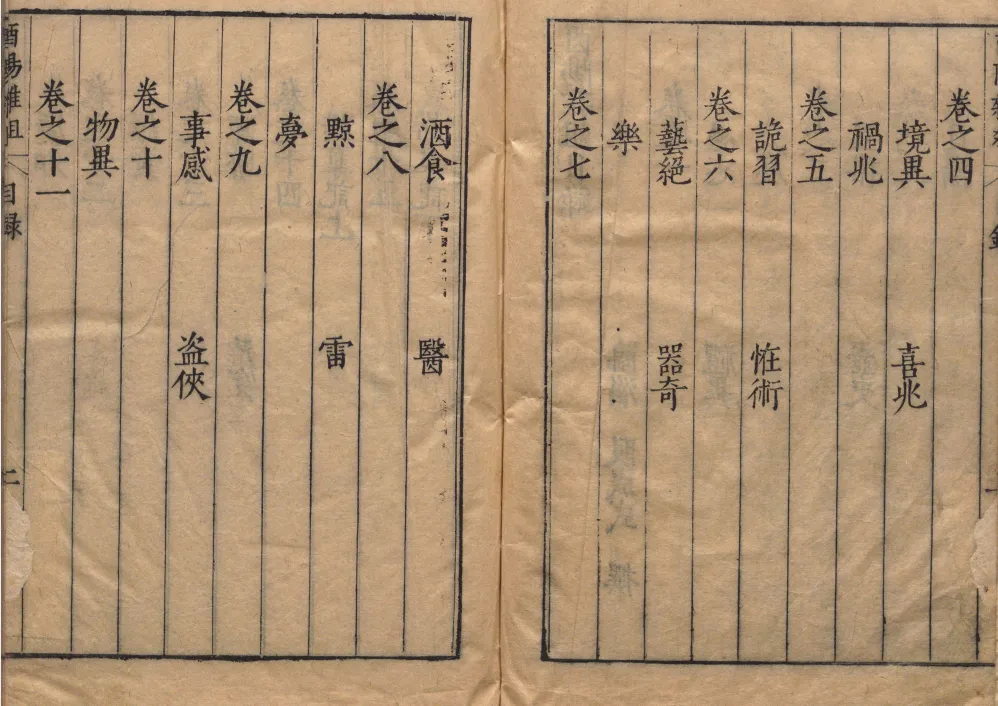 卷之四
境異 喜兆
禍兆
卷之五
詭習 恠術
卷之六
藝絕 器奇
樂
卷之七
酒食 醫
卷之八
黥 雷
夢
卷之九
事感 盗俠
卷之十
物異
卷之十一
酉陽雜俎 目録 二